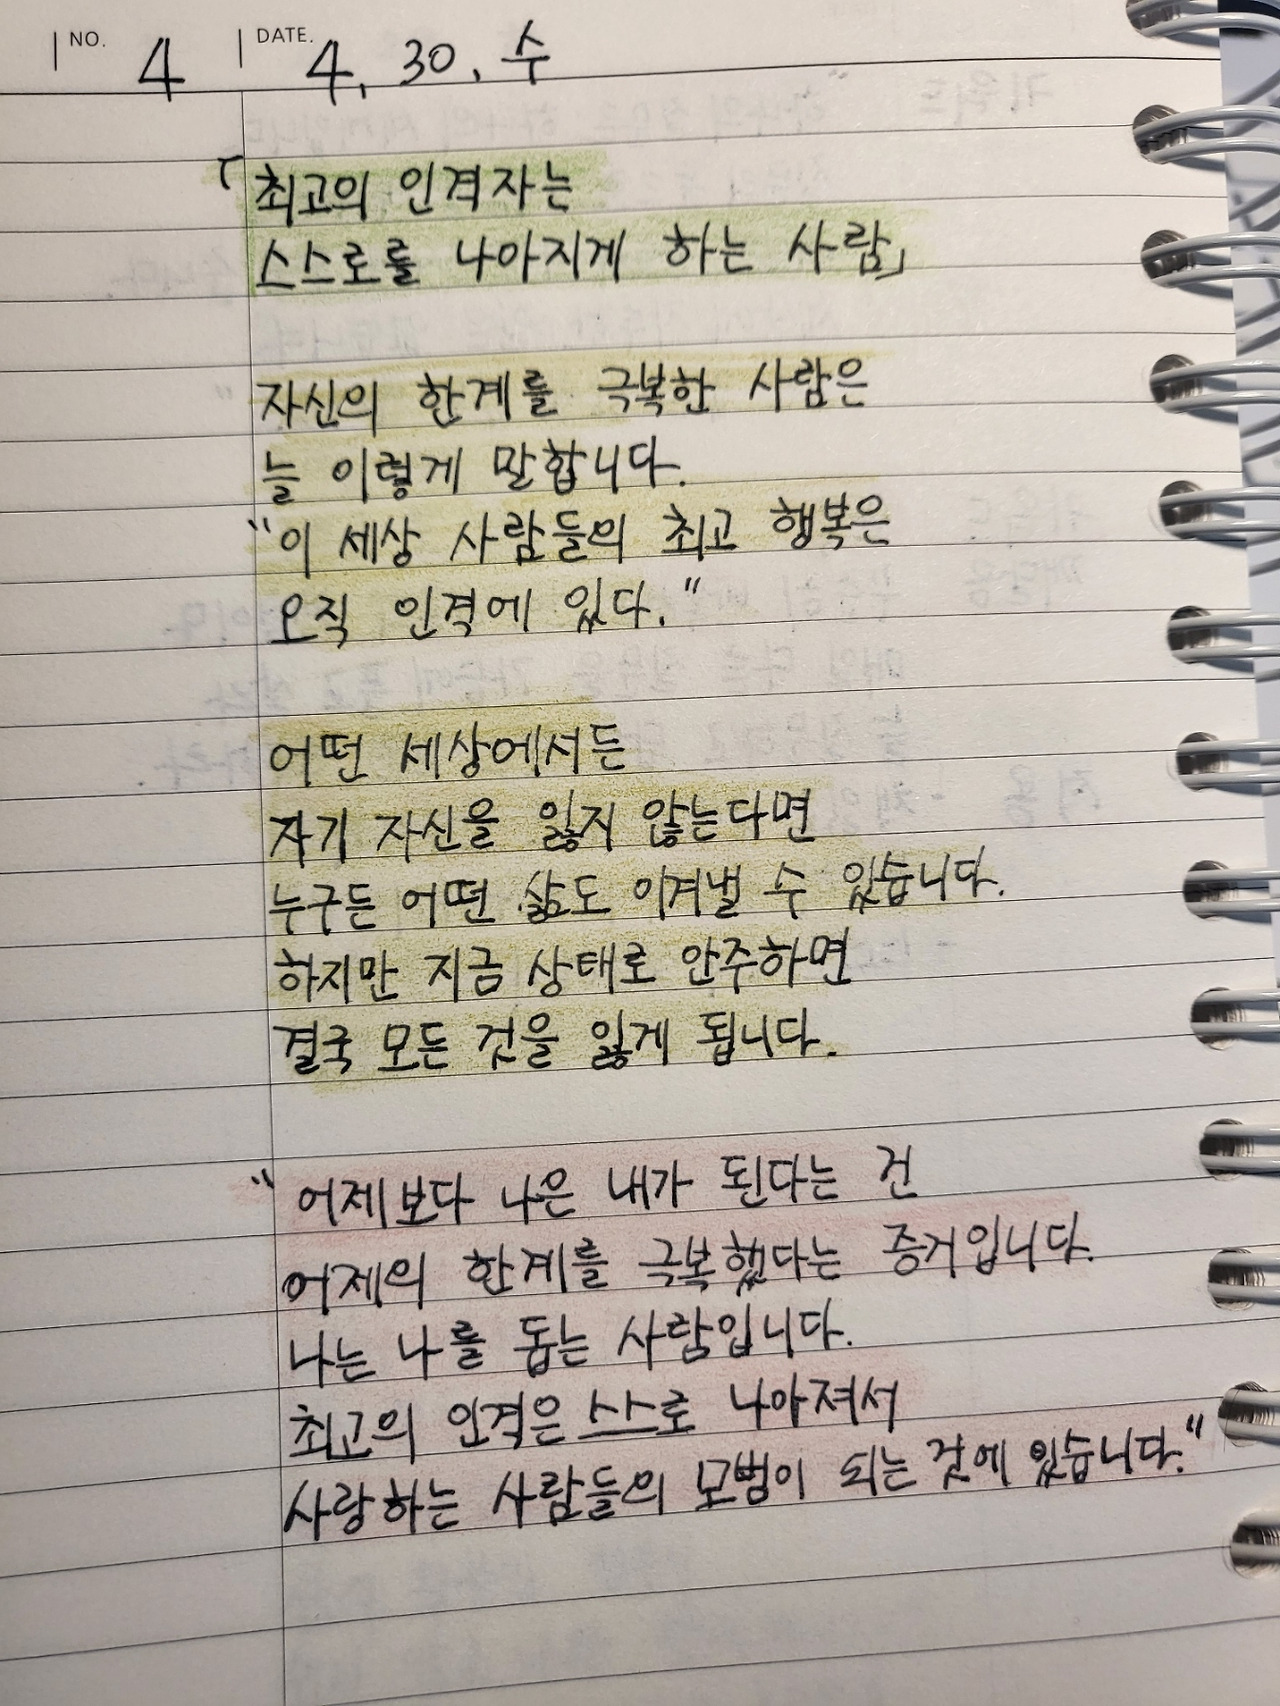 NO. 4 DATE. 4, 30, 수
「최고의 인격자는
스스로를 나아지게 하는 사람」
자신의 한계를 극복한 사람은
늘 이렇게 말합니다.
"이 세상 사람들의 최고 행복은
오직 인격에 있다."
어떤 세상에서든
자기 자신을 잃지 않는다면
누구든 어떤 삶도 이겨낼 수 있습니다.
하지만 지금 상태로 안주하면
결국 모든 것을 잃게 됩니다.
"어제보다 나은 내가 된다는 건
어제의 한계를 극복했다는 증거입니다.
나는 나를 돕는 사람입니다.
최고의 인격은 스스로 나아져서
사랑하는 사람들의 모범이 되는 것에 있습니다."